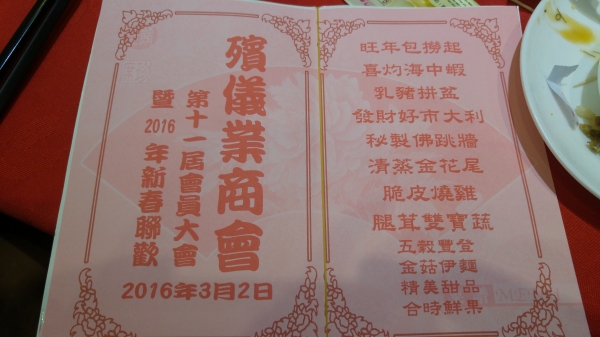 殯儀業商會
第十一屆會員大會
暨2016年新春聯歡
2016年3月2日
旺年包撈起
喜灼海中蝦
乳豬拼盆
發財好市大利
秘製佛跳牆
清蒸金花尾
脆皮燒雞
腿茸雙寶蔬
五穀豐登
金菇伊麵
精美甜品
合時鮮果